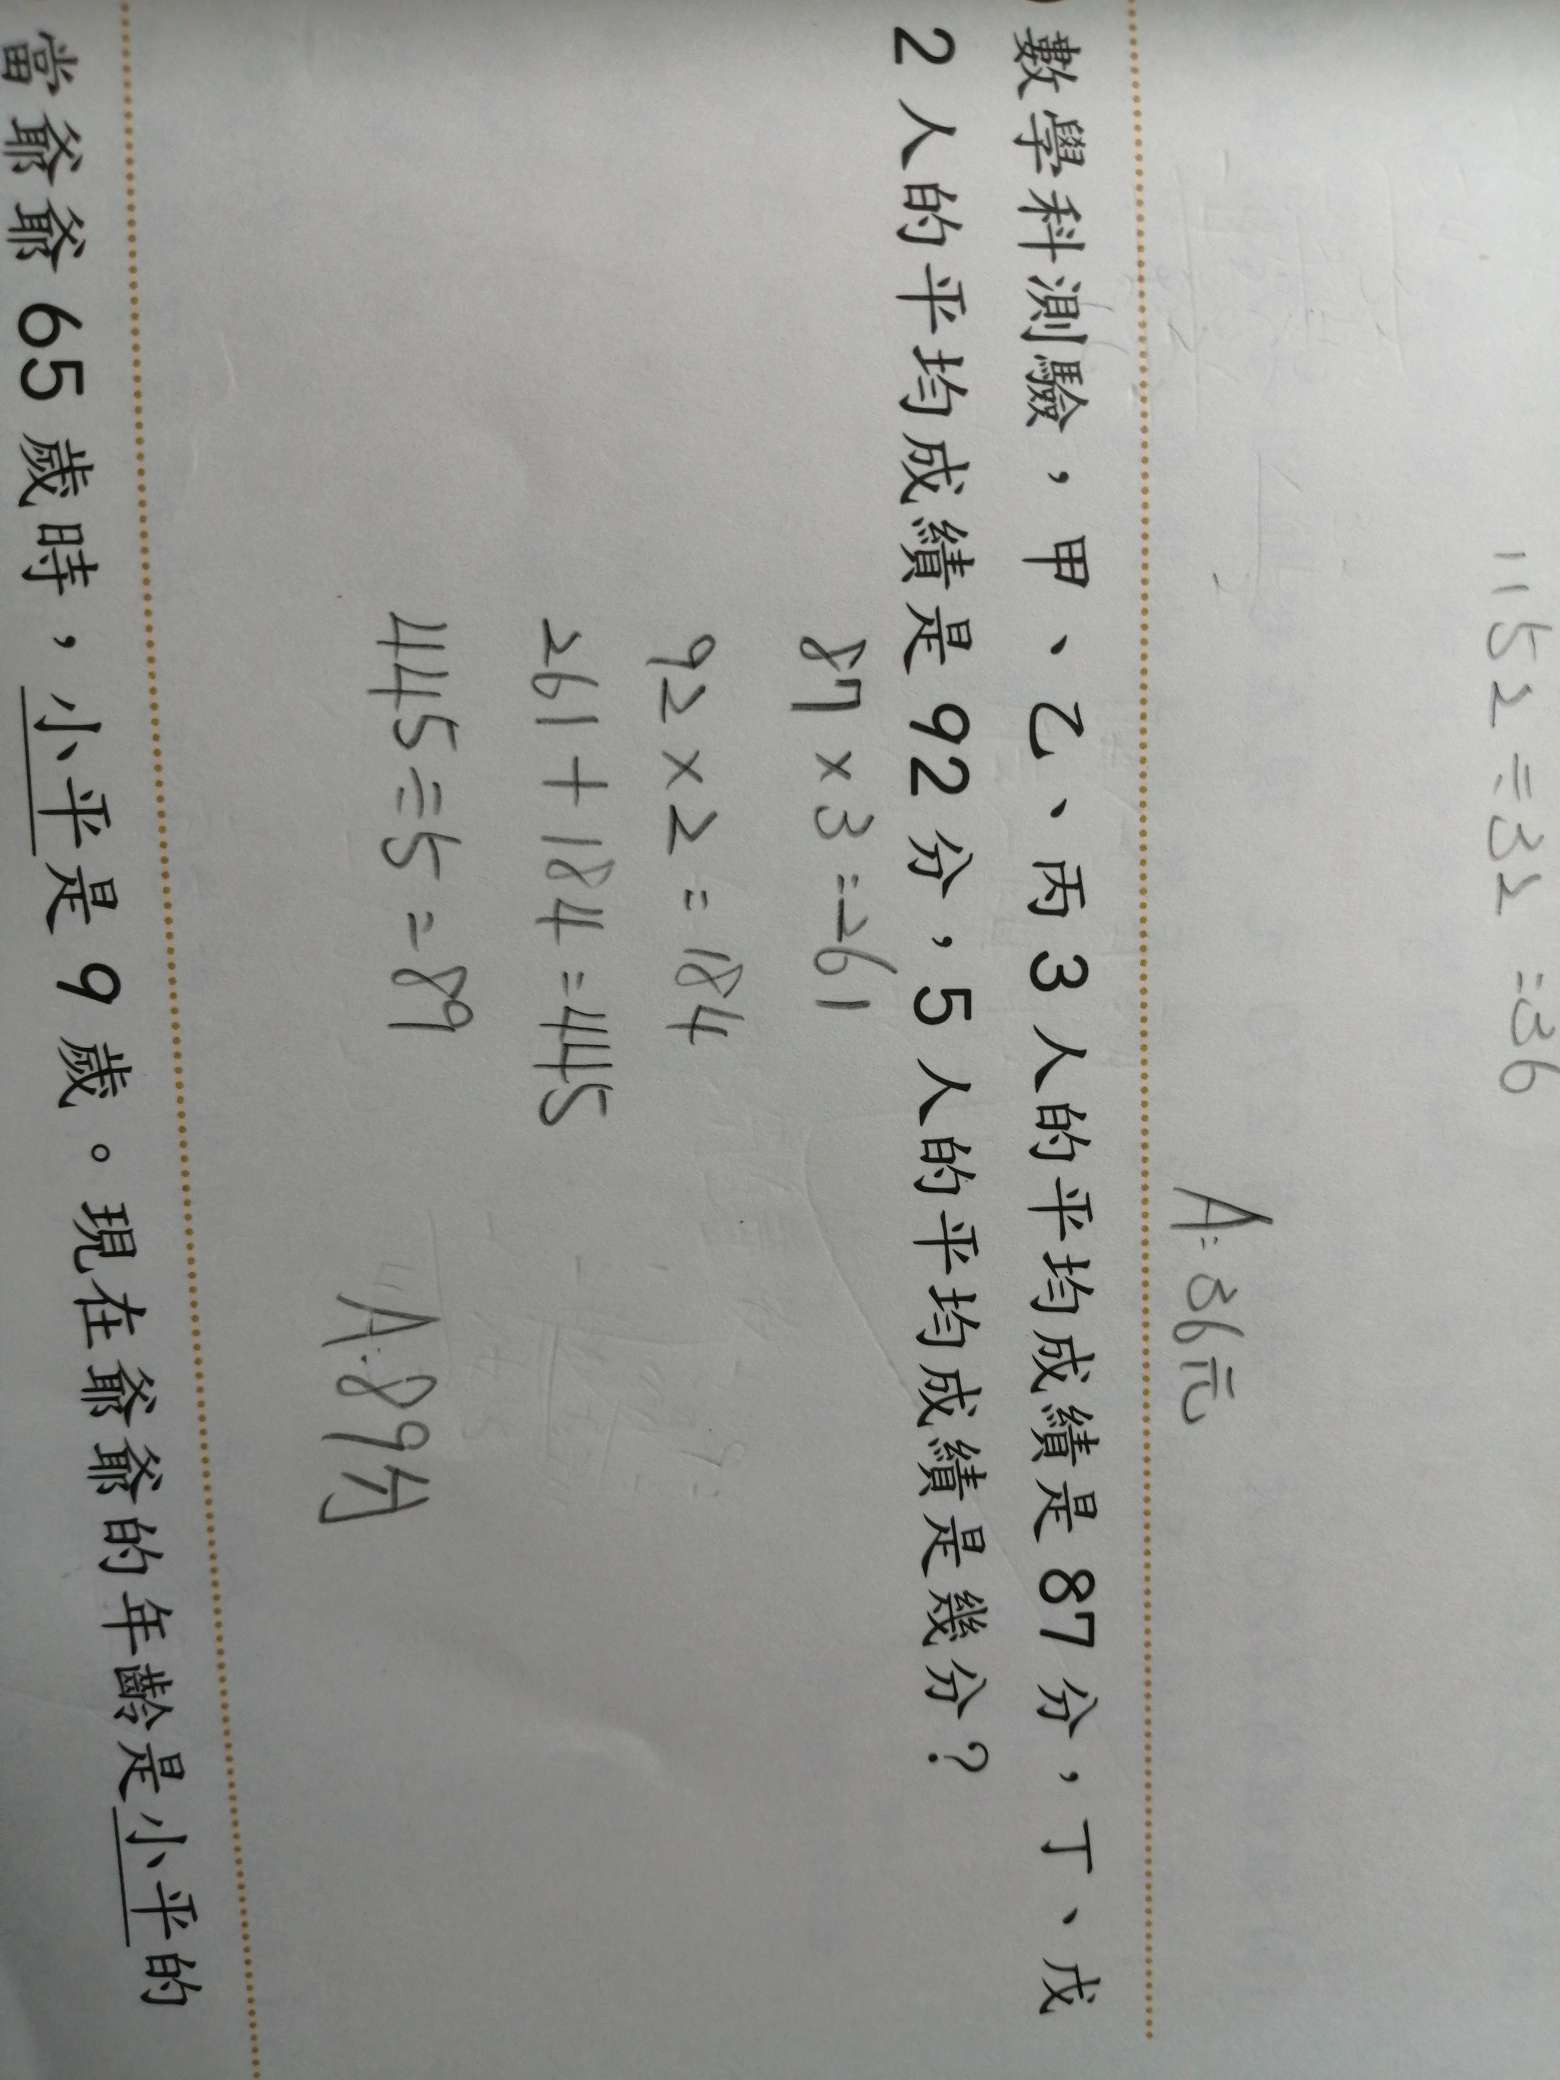 1152÷32=36
A:36元
數學科測驗，甲、乙、丙3人的平均成績是87分，丁、戊
2人的平均成績是92分，5人的平均成績是幾分？
87×3=261
92×2=184
261+184=445
445÷5=89
A:89分
當爺爺65歲時，小平是9歲。現在爺爺的年齡是小平的